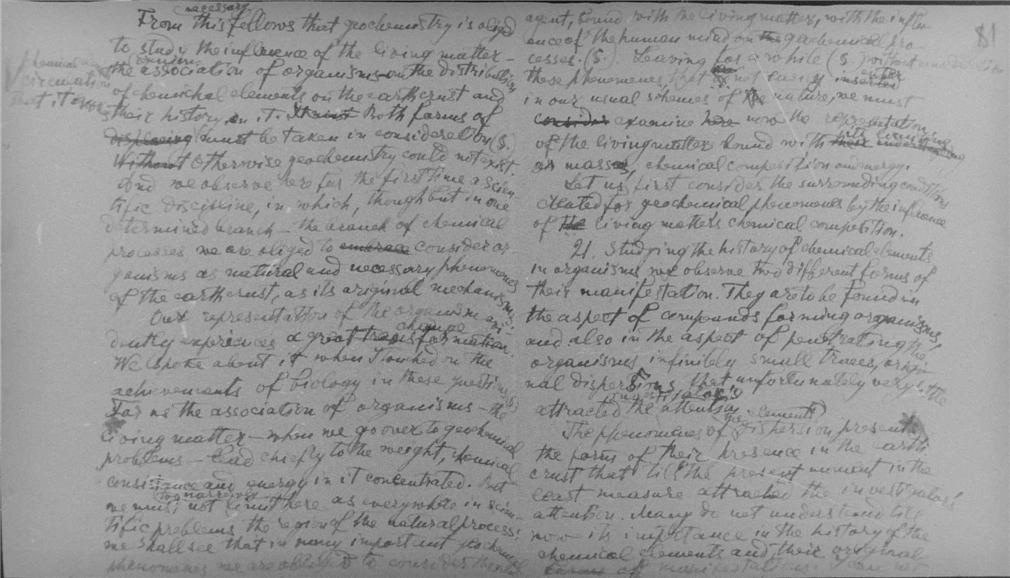 necessary
From this follows that geochemistry is obliged
to study the influence of the living matter -
the association of organisms on the distribution
of chemichal elements on the earthcrust and
their history, on it. Both forms of
must be taken in consideration (S.)
Without Otherwise geochemistry could not exist.
And we observe here for the first time a scien-
tific discipline, in which, though but in one
determined branch - the branch of chemical
processes we are obliged to embrace consider or-
ganisms as natural and necessary phenomenes
of the earthcrust, as its original mechanisms.
Our representation of the organism evi-
change
dently experiences a great transformation.
We spoke about it when I touched on the
achievements of biology in these questions
Far as the association of organisms - the
living matter - when we go over to geochemical
problems - lead chiefly to the weight, chemical
consistance and energy in it concentrated. But
too narrow
we must not limit here as everywhere in scien-
tific problems the region of the natural process:
we shall see that in many important geochem.
phenomenes we are obliged to consider the
chemical
circumstance
that it
81
agent, bound with the living matter, with the influ-
ence of the human mind on the geochemical pro-
cesses. (S.) Leaving for a while (S.) without
these phenomenes, that not easily
in our usual schemes of the nature, we must
consider examine here now the representation
of the living matter bound with their
or masses, chemical competition and energy.
Let us first consider the surrounding conditions
created for geochemical phenomenes by the influence
of the living matter's chemical competition.
21. Studying the history of chemical elements
in organisms we observe two different forms of
their manifestation. They are to be found in
the aspect of compounds forming organisms,
and also in the aspect of penetrating the
organisms infinitely small traces, origi-
nal dispersions, that unfortunately very little
investigator's
attracted the attention
elements)
The phenomenes of dispersion present
the forms of their presence in the earth
crust that till the present moment in the
least measure attracted the investigators'
attention. Many do not understand till
now its importance in the history of the
chemical elements and their original
forms of manifestations.